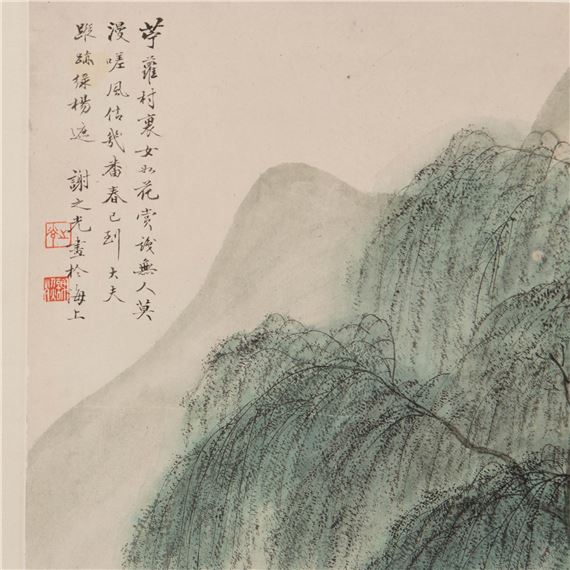 苧蘿村裏女如花賞識無人莫
漫嗟風信幾番春已到大夫
蹤跡綠楊遮 謝之光畫於海上